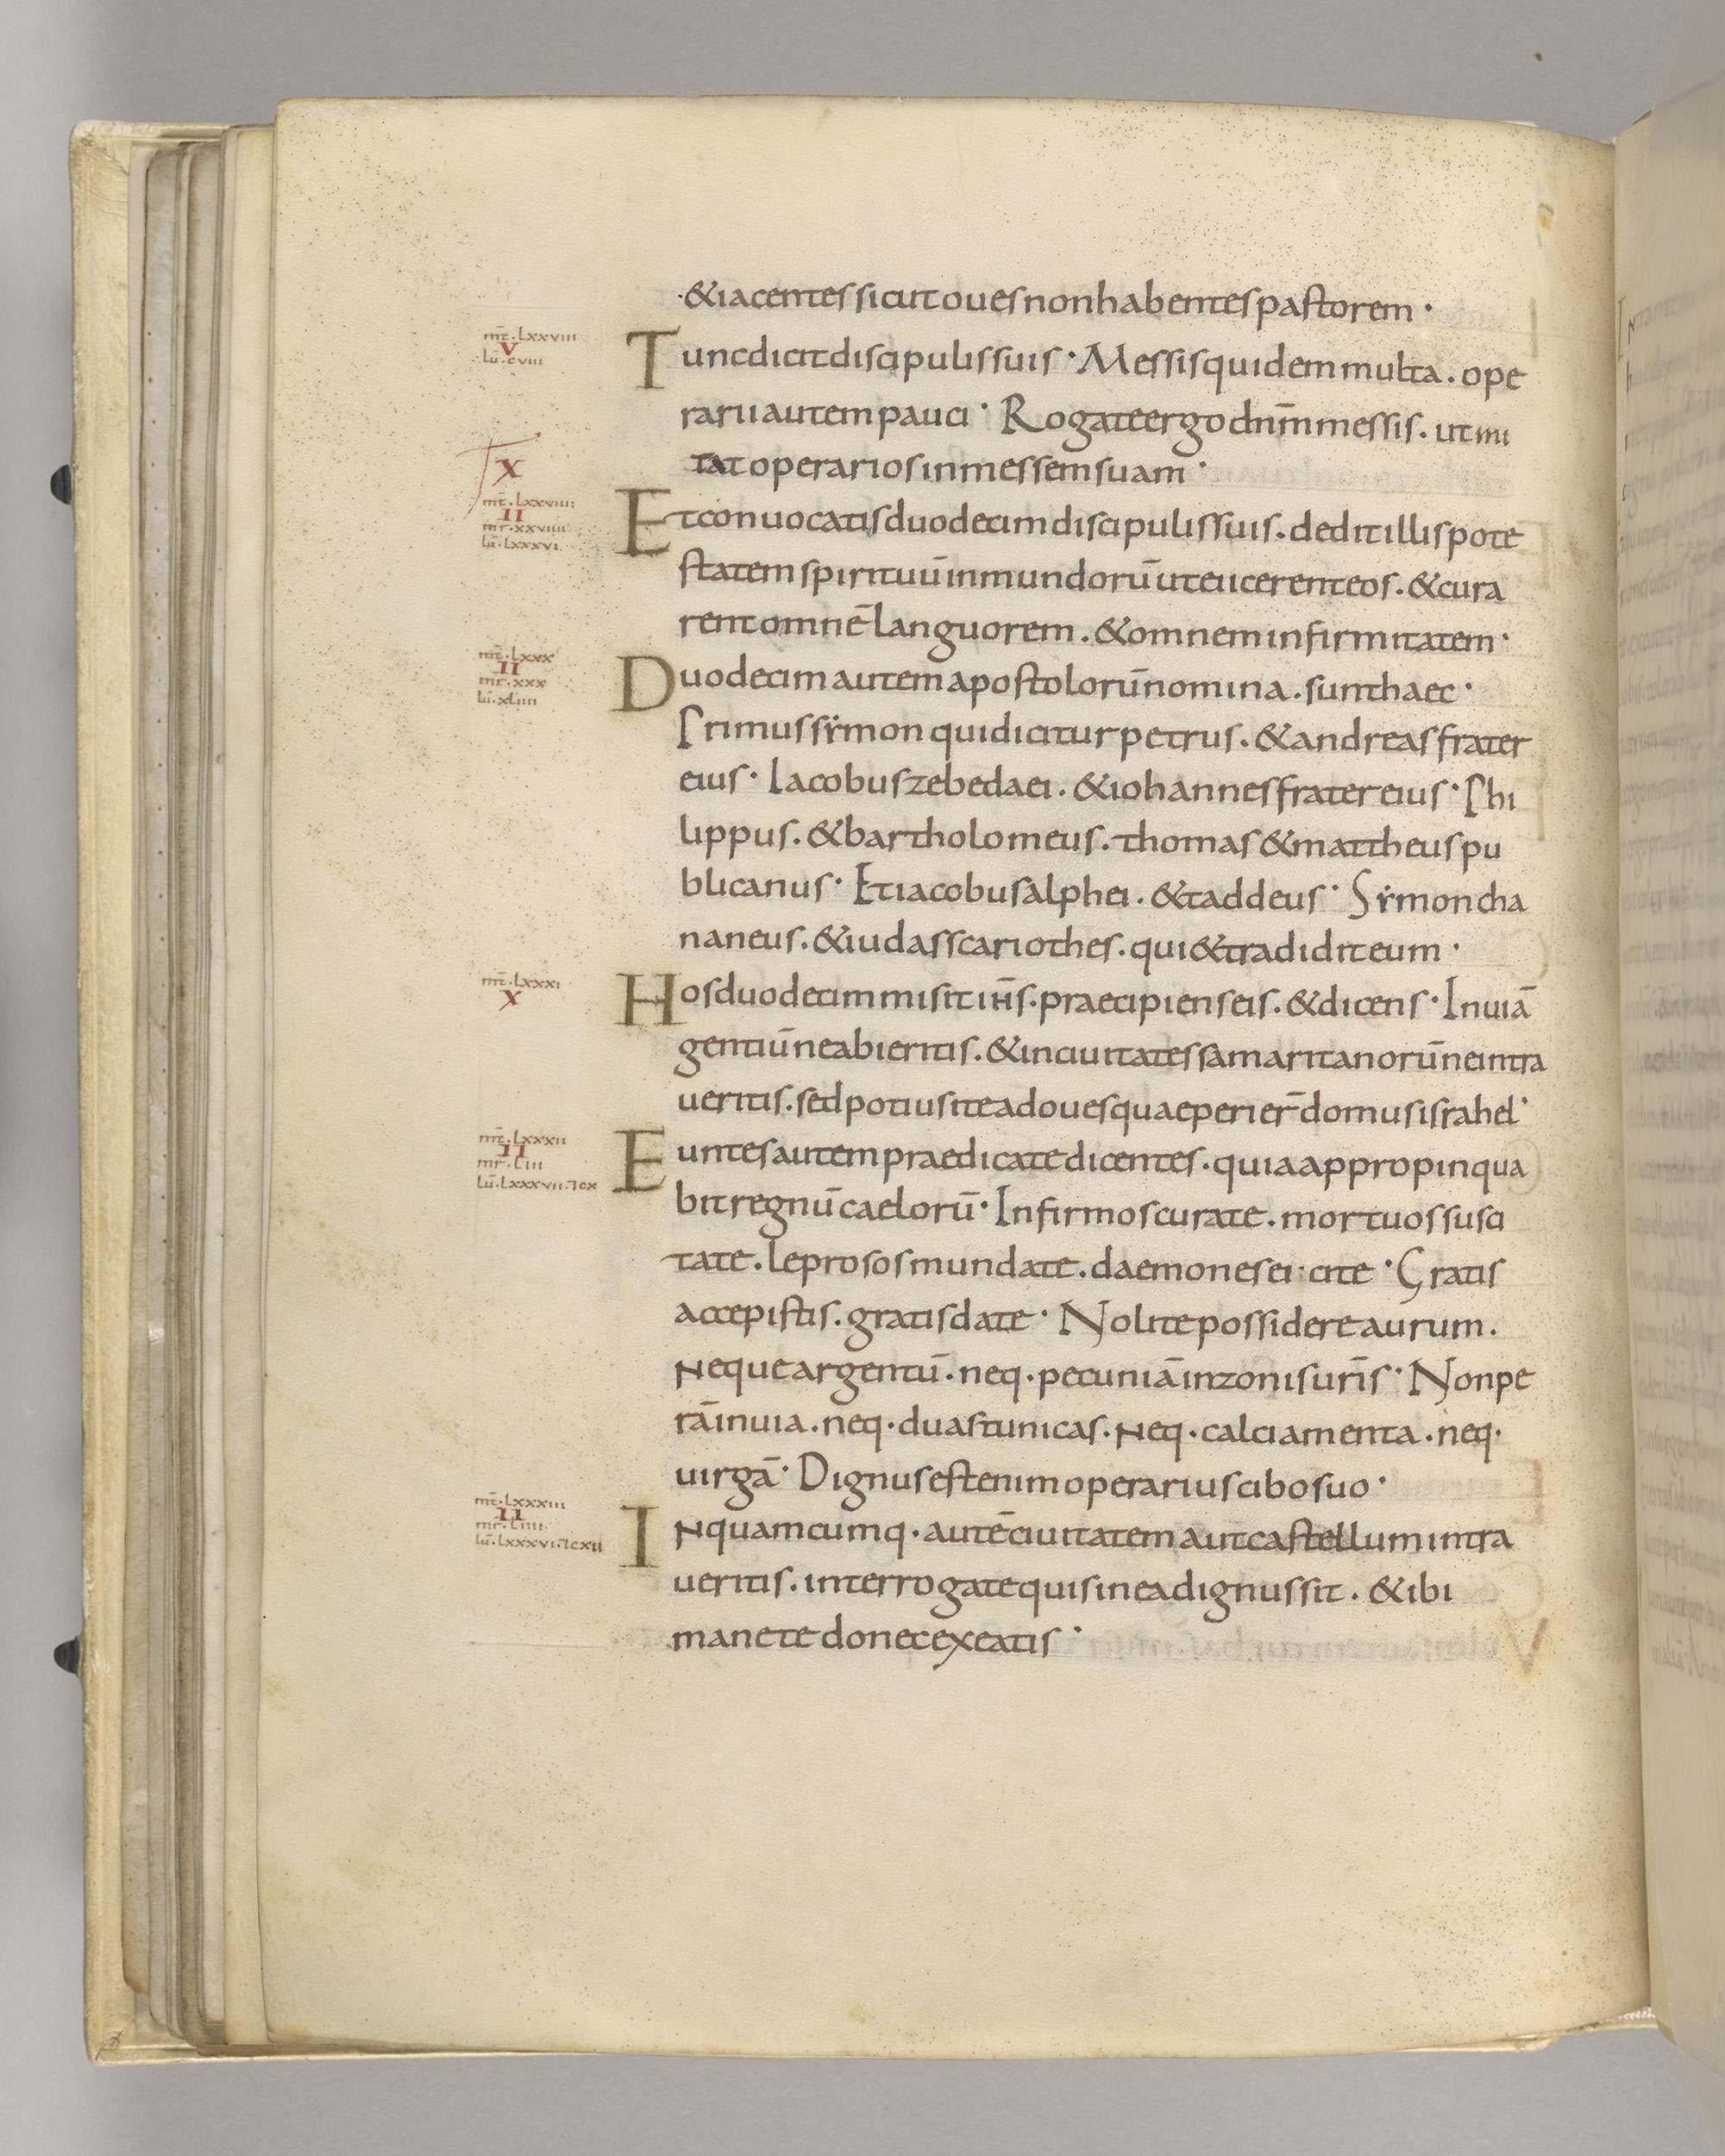 &iacentes sicut oues non habentes pastorem ·
mt̄ · Lxxviii
V
lū · cviii
Tunc dicit discipulis suis · Messis quidem multa . ope
rarii autem pauci · Rogate ergo dn̄m messis . ut mi
tat operarios in messem suam ·
X
mt̄ · Lxxviiii
II
mr · xxviiii
lū · Lxxxvi
Et conuocatis duodecim discipulis suis . dedit illis pote
statem spirituū inmundorū ut eicerent eos . & cura
rent omnē languorem . & omnem infirmitatem ·
mt̄ · Lxxx
II
mr · xxx
lū · xLiiii
Duodecim autem apostolorū nomina . sunt haec ·
Primus sẏmon qui dicitur petrus . & andreas frater
eius · Iacobus zebedaei . & iohannes frater eius · Phi
lippus . & bartholomeus . thomas & mattheus pu
blicanus · Et iacobus alphei . & taddeus · Sẏmon cha
naneus . & iudas scariothes . qui & tradidit eum ·
mt̄ · Lxxxi
X
Hos duodecim misit ih̄s . praecipiens eis . & dicens · In uiā
gentiū ne abieritis . & in ciuitates samaritanorū ne intra
ueritis . sed potius ite ad oues quae perier̄ domus israhel ·
mt̄ · Lxxxii
II
mr · Liii
lū · Lxxxvii · ⁊cx
Euntes autem praedicate dicentes . quia appropinqua
bit regnū caelorū · Infirmos curate . mortuos susci
tate . leprosos mundate . daemones eicite · Gratis
accepistis . gratis date · Nolite possidere aurum .
Neque argentū . neq · pecuniā in zonis ur̄is · Non pe
rā in uia . neq · duas tunicas . Neq · calciamenta . neq ·
uirgā · Dignus est enim operarius cibo suo ·
mt̄ · Lxxxiii
II
mr · Liiii
lū · Lxxxvi · ⁊cxii
In quamcumq · autē ciuitatem aut castellum intra
ueritis . interrogate quis in ea dignus sit . & ibi
manete donec exeatis ·